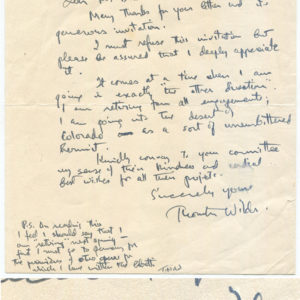 Many thanks for your letter and its
generous invitation.
I must refuse this invitation but
please be assured that I deeply appreciate
it.
It comes at a time when I am
going in exactly the other direction.
I am retiring from all engagements;
I am going into the desert of
Colorado as a sort of unembittered
hermit.
Kindly convey to your committee
my sense of their kindness and cordial
best wishes for all their projects.
Sincerely yours
Thornton Wilder
P.S. On reading this
I feel I should say that I
am "retiring" next spring
but I must go to Germany for
the premières of opera
which I have written the
TNW